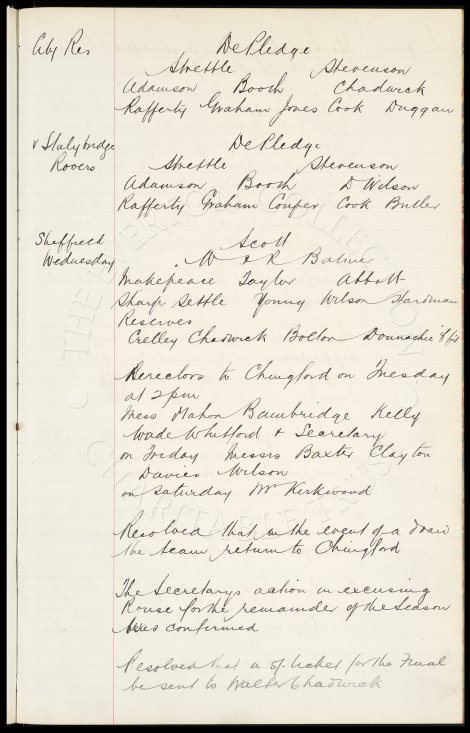 City Res
DePledge
Strettle Stevenson
Adamson Booth Chadwick
Rafferty Graham Jones Cook Duggan
v Stalybridge
Rovers
DePledge
Strettle Stevenson
Adamson Booth D Wilson
Rafferty Graham Couper Cook Butler
Sheffield
Wednesday
Scott
W & R Balmer
Makepeace Taylor Abbott
Sharp Settle Young Wilson Hardman
Reserves
Crelley Chadwick Bolton Donnachie if fit
Directors to Chingford on Tuesday
at 2pm
Mess Mahon Bainbridge Kelly
Wade Whitford & Secretary
on Friday Messrs Baxter Clayton
Davies Wilson
on Saturday Mr Kirkwood
Resolved that in the event of a draw
the team return to Chingford
The Secretarys action in excusing
Rouse for the remainder of the season
was confirmed
Resolved that a 5/- ticket for the Final
be sent to Walter Chadwick